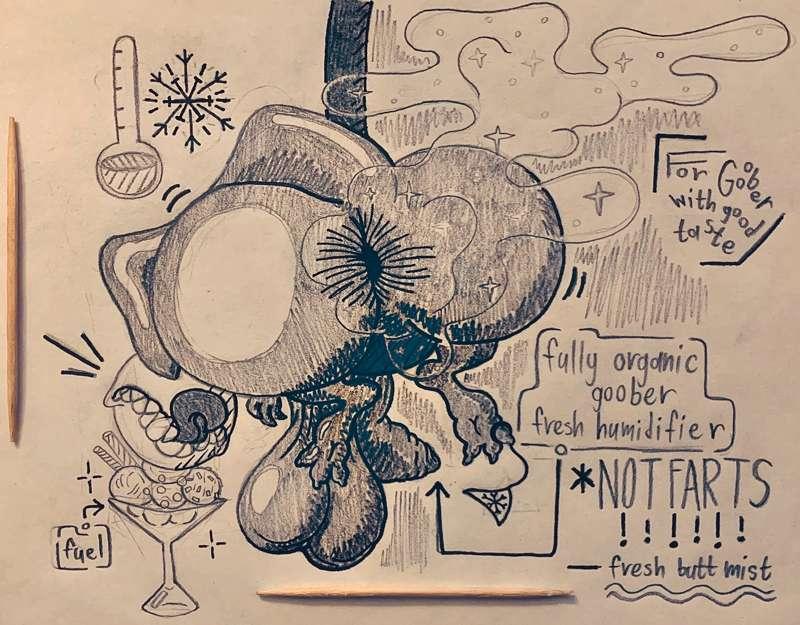 For Goober
with good
taste
fully organic
goober
fresh humidifier
*NOT FARTS
!!!!!!
— fresh butt mist
fuel